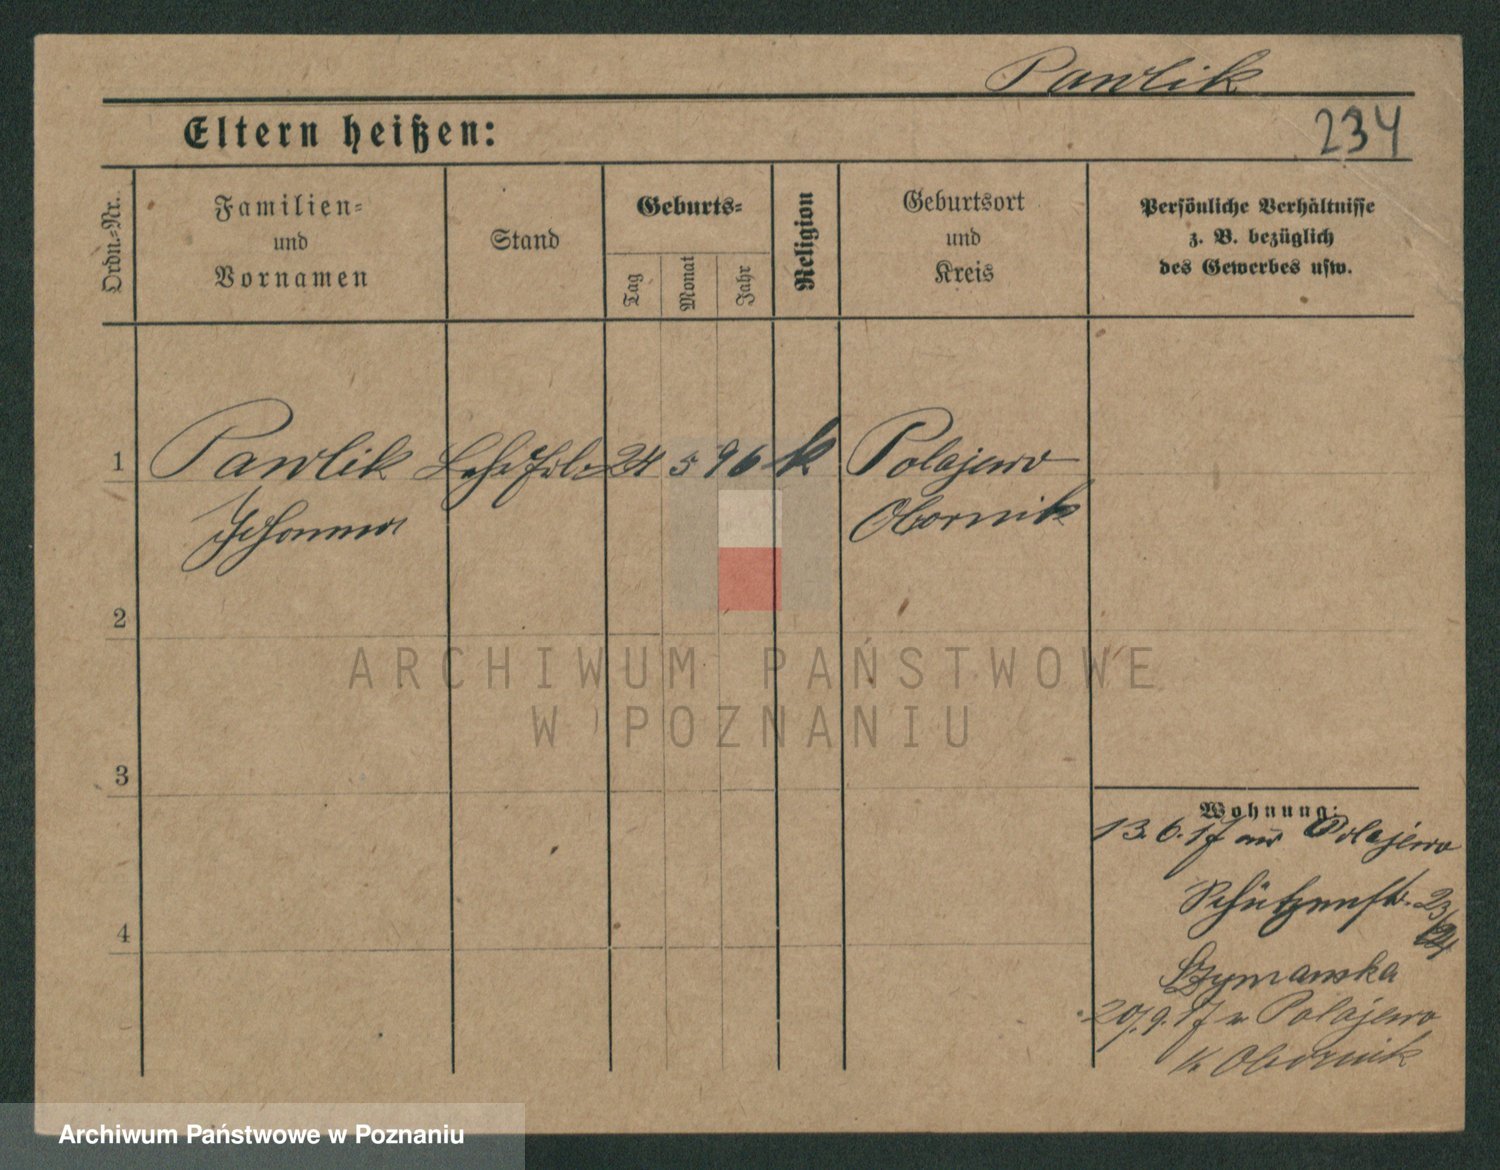 Pawlik
Eltern heißen:
234
Ordn.=Nr.
Familien=
und
Vornamen
Stand
Geburts=
Tag
Monat
Jahr
Religion
Geburtsort
und
Kreis
Persönliche Verhältnisse
z. B. bezüglich
des Gewerbes usw.
1
Pawlik
24 5 96 k Polajewo
Johanna
Obornik
2
ARCHIWUM PAŃSTWOWE
W POZNANIU
3
Wohnung:
13.6.17 aus Polajewo
Schützenstr. 23
4
Szymanska
20.9.17 n Polajewo
K Obornik
Archiwum Państwowe w Poznaniu